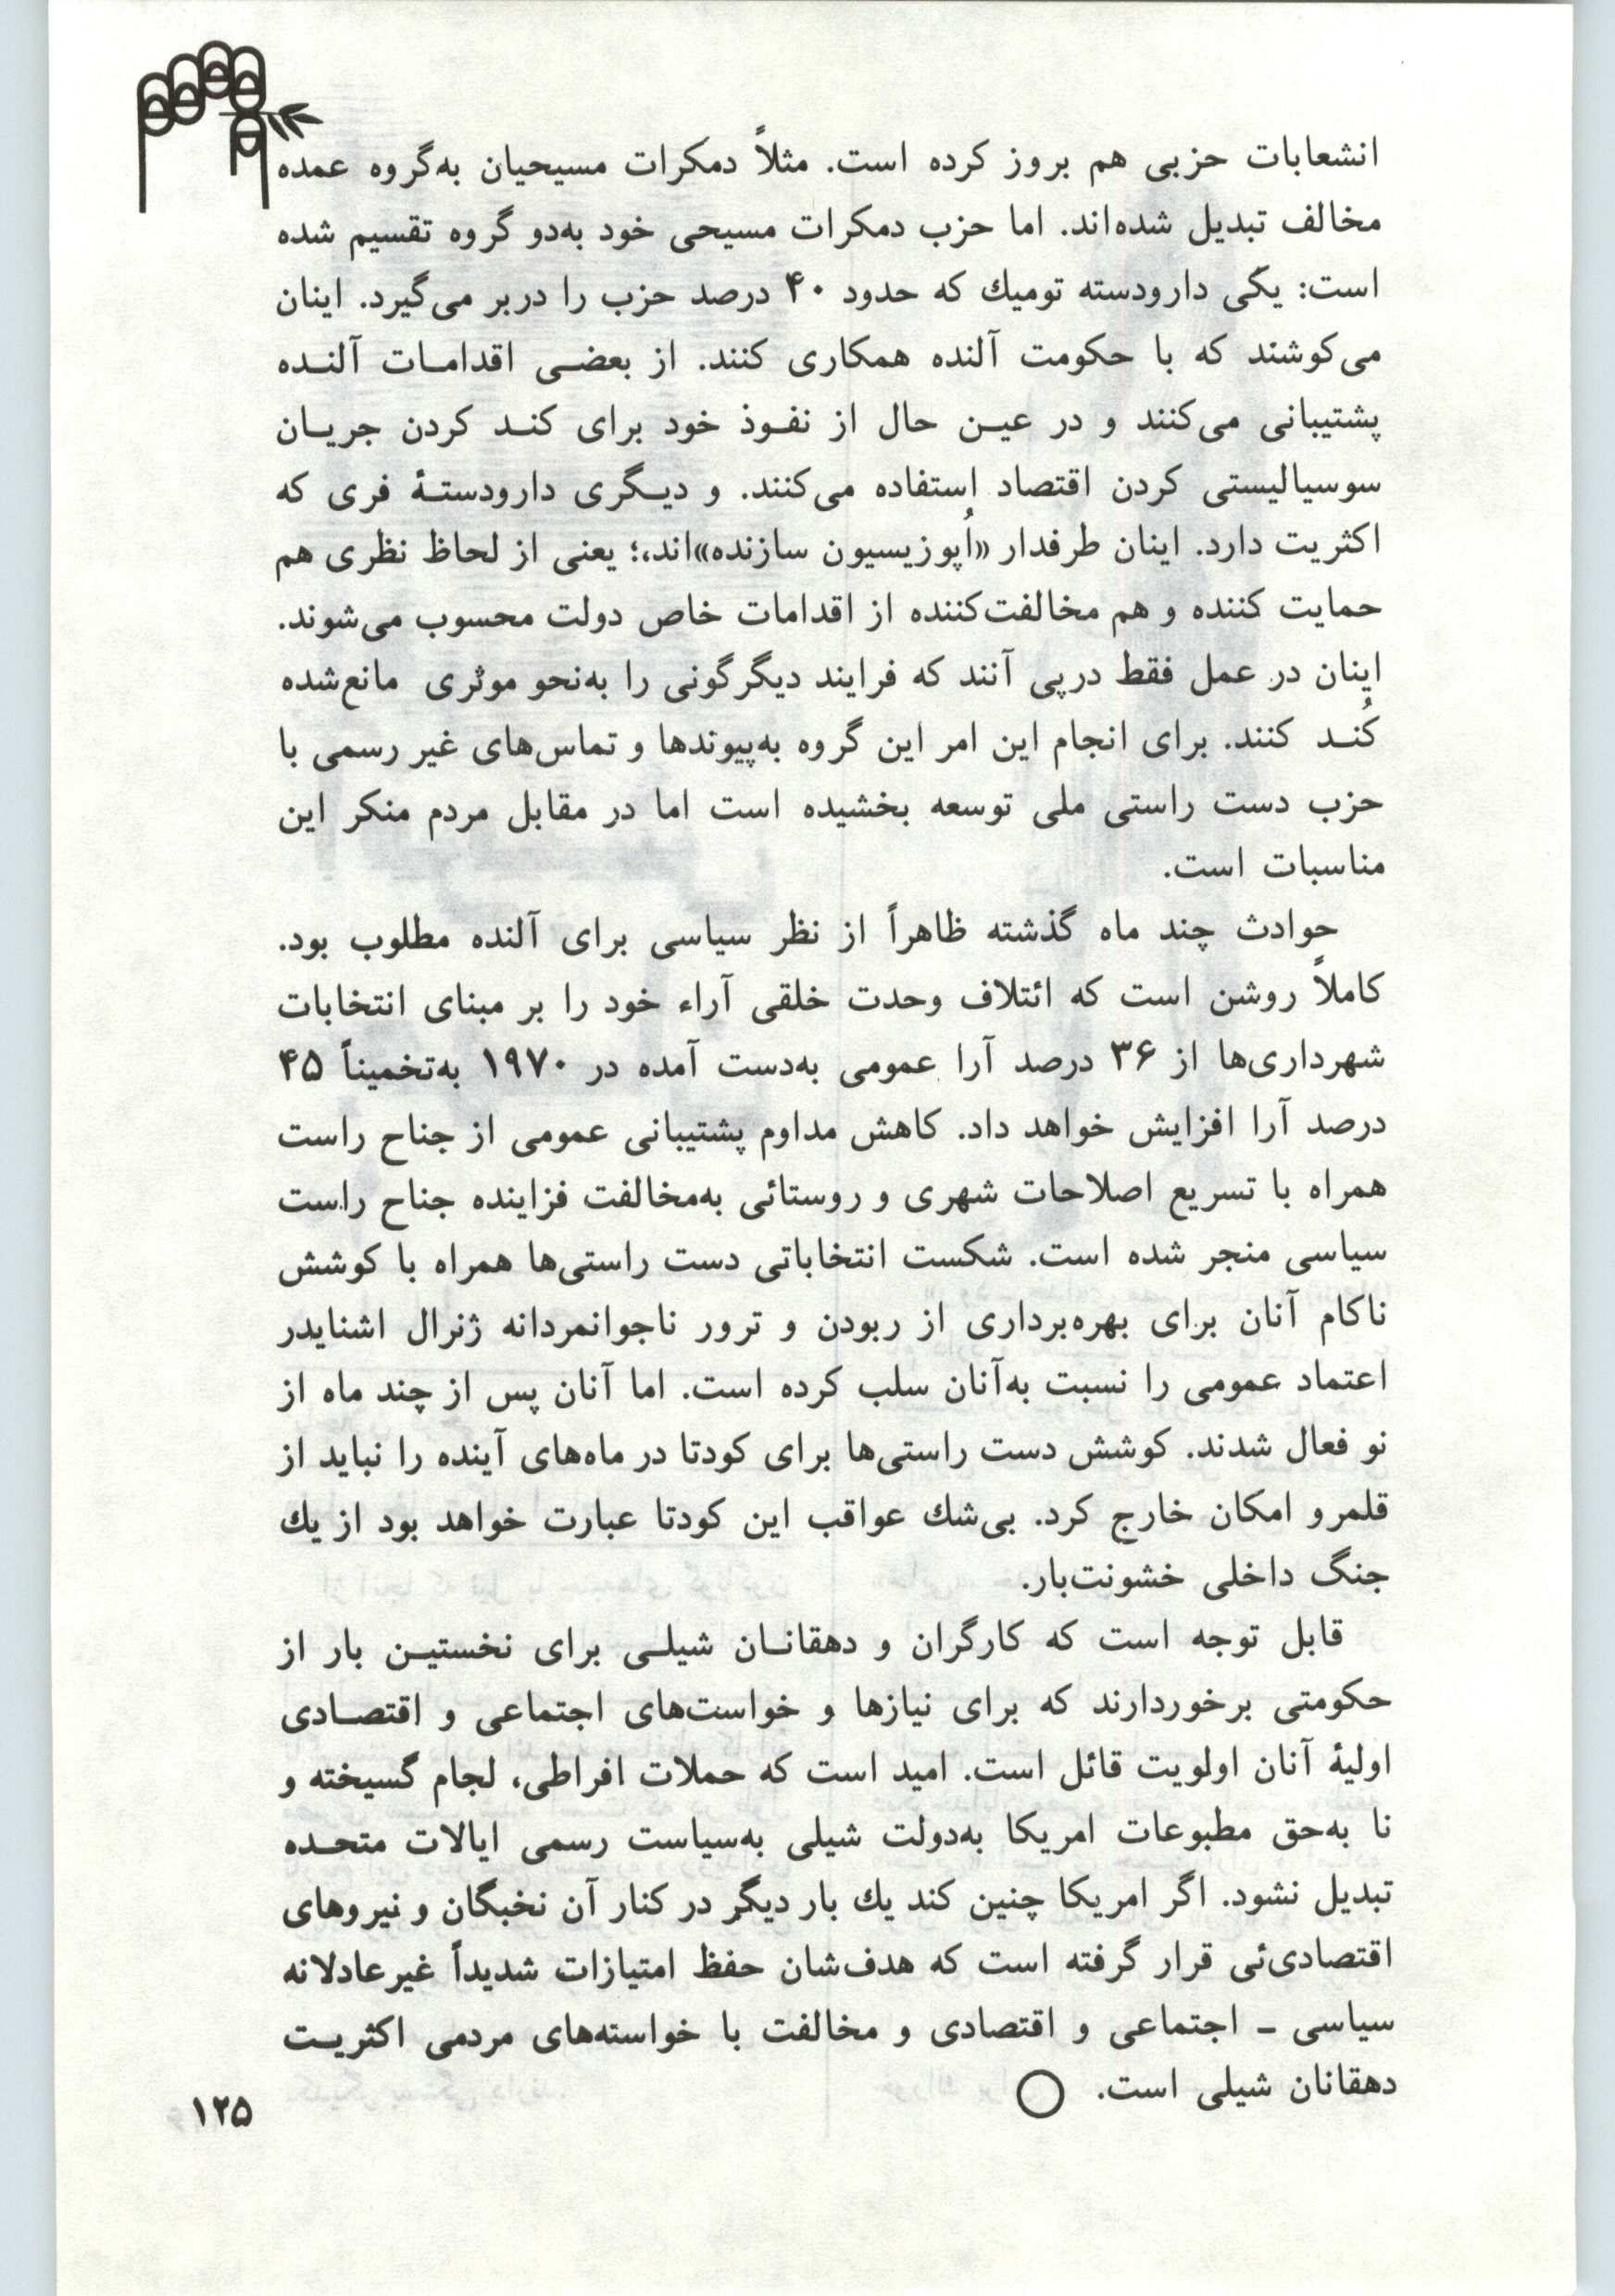 انشعابات حزبی هم بروز کرده است. مثلاً دمکرات مسیحیان به‌گروه عمده
مخالف تبدیل شده‌اند. اما حزب دمکرات مسیحی خود به‌دو گروه تقسیم شده
است: یکی دارودسته تومیك که حدود ۴۰ درصد حزب را دربر می‌گیرد. اینان
می‌کوشند که با حکومت آلنده همکاری کنند. از بعضی اقدامات آلنده
پشتیبانی می‌کنند و در عین حال از نفوذ خود برای کند کردن جریان
سوسیالیستی کردن اقتصاد استفاده می‌کنند. و دیگری دارودستهٔ فری که
اکثریت دارد. اینان طرفدار «اُپوزیسیون سازنده»اند،؛ یعنی از لحاظ نظری هم
حمایت کننده و هم مخالفت‌کننده از اقدامات خاص دولت محسوب می‌شوند.
اینان در عمل فقط درپی آنند که فرایند دیگرگونی را به‌نحو موثری مانع‌شده
کُند کنند. برای انجام این امر این گروه به‌پیوندها و تماس‌های غیر رسمی با
حزب دست راستی ملی توسعه بخشیده است اما در مقابل مردم منکر این
مناسبات است.
حوادث چند ماه گذشته ظاهراً از نظر سیاسی برای آلنده مطلوب بود.
کاملاً روشن است که ائتلاف وحدت خلقی آراء خود را بر مبنای انتخابات
شهرداری‌ها از ۳۶ درصد آرا عمومی به‌دست آمده در ۱۹۷۰ به‌تخمیناً ۴۵
درصد آرا افزایش خواهد داد. کاهش مداوم پشتیبانی عمومی از جناح راست
همراه با تسریع اصلاحات شهری و روستائی به‌مخالفت فزاینده جناح راست
سیاسی منجر شده است. شکست انتخاباتی دست راستی‌ها همراه با کوشش
ناکام آنان برای بهره‌برداری از ربودن و ترور ناجوانمردانه ژنرال اشنایدر
اعتماد عمومی را نسبت به‌آنان سلب کرده است. اما آنان پس از چند ماه از
نو فعال شدند. کوشش دست راستی‌ها برای کودتا در ماه‌های آینده را نباید از
قلمرو امکان خارج کرد. بی‌شك عواقب این کودتا عبارت خواهد بود از یك
جنگ داخلی خشونت‌بار.
قابل توجه است که کارگران و دهقانان شیلی برای نخستین بار از
حکومتی برخوردارند که برای نیازها و خواست‌های اجتماعی و اقتصادی
اولیهٔ آنان اولویت قائل است. امید است که حملات افراطی، لجام گسیخته و
نا به‌حق مطبوعات امریکا به‌دولت شیلی به‌سیاست رسمی ایالات متحده
تبدیل نشود. اگر امریکا چنین کند یك بار دیگر در کنار آن نخبگان و نیروهای
اقتصادی‌ئی قرار گرفته است که هدف‌شان حفظ امتیازات شدیداً غیرعادلانه
سیاسی ـ اجتماعی و اقتصادی و مخالفت با خواسته‌های مردمی اکثریت
دهقانان شیلی است.
۱۲۵